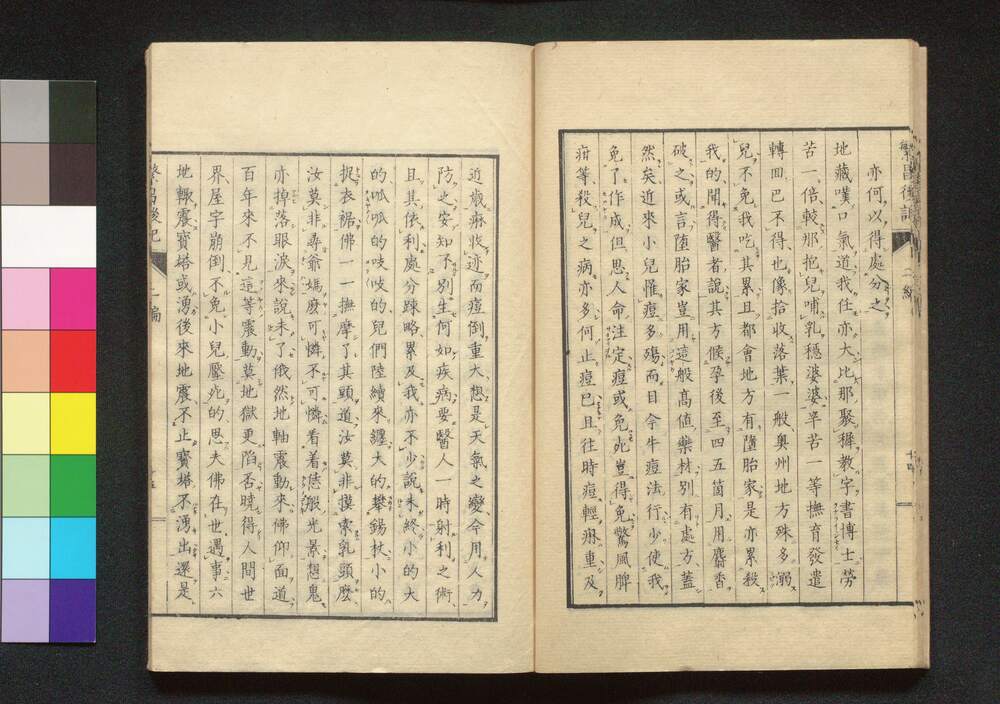 繁昌後記 二編 十四
亦何以得處分之
地藏嘆口氣道我任亦大比那聚穉教字書博士勞
苦一倍較那抱兒哺乳穩婆婆辛苦一等撫育發遣
轉回巴不得也像拾收落葉一般奥州地方殊多溺
兒不免我吃其累且都會地方有墮胎家是亦累殺
我的聞得醫者說其方候孕後至四五箇月用麝香
破之或言墮胎家豈用這般高値藥材別有處方蓋
然矣近來小兒罹痘多殤而目今牛痘法行少使我
免了作成但思人命注定痘或免死豈得免驚風脾
疳等殺兒之病亦多何止痘巴且往時痘輕痳重及
近歳痳收迹而痘倒重大想是天氣之變今用人力
防之安知不別生何如疾病要醫人一時射利之術
且其依利處分疎略累及我亦不少說未終小的大
的呱呱的吱吱的兒們陸續來纒大的攀錫杖小的
捉衣裾佛一一撫摩了其頭道汝莫非摸索乳頭麽
汝莫非尋爺媽麽可憐不可憐着着恁般光景想鬼
亦掉落眼淚來說未了俄然地軸震動來佛仰面道
百年來不見這等震動莫地獄更陷否曉得人間世
界屋宇崩倒不免小兒壓死的思夫佛在世遇事六
地輙震寶塔或湧後來地震不止寶塔不湧出還是
繁昌後記 二編